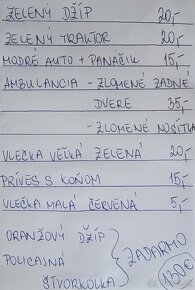 ZELENÝ DŽÍP 20,-
ZELENÝ TRAKTOR 20,-
MODRÉ AUTO + PANÁČIK 15,-
AMBULANCIA - ZLOMENÉ ZADNÉ
DVERE 35,-
- ZLOMENÉ NOSÍTKA
VLEČKA VEĽKÁ ZELENÁ 20,-
PRÍVES S KOŇOM 15,-
VLEČKA MALÁ ČERVENÁ 5,-
ORANŽOVÝ DŽÍP
POLICAJNÁ
ŠTVORKOLKA
ZADARMO
130€